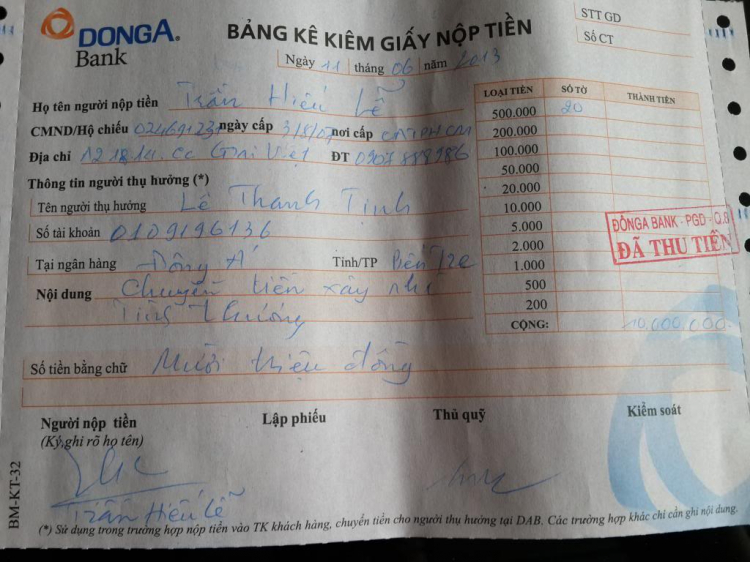 DONGA Bank
BẢNG KÊ KIÊM GIẤY NỘP TIỀN
STT GD
Số CT
Ngày 11 tháng 06 năm 2013
Họ tên người nộp tiền Trần Hiếu Lễ
CMND/Hộ chiếu ngày cấp nơi cấp
Địa chỉ ĐT
Thông tin người thụ hưởng (*)
Tên người thụ hưởng Lê Thanh Tịnh
Số tài khoản 0109196136
Tại ngân hàng Đông Á Tỉnh/TP Bến Tre
Nội dung Chuyển tiền xây nhà
Tình Thương
LOẠI TIỀN SỐ TỜ THÀNH TIỀN
500.000 20
200.000
100.000
50.000
20.000
10.000
5.000
2.000
1.000
500
200
CỘNG: 10,000,000
ĐÔNGA BANK - PGD - Q.8
ĐÃ THU TIỀN
Số tiền bằng chữ Mười triệu đồng
Người nộp tiền Lập phiếu Thủ quỹ Kiểm soát
(Ký, ghi rõ họ tên)
Trần Hiếu Lễ
BM-KT-32
(*) Sử dụng trong trường hợp nộp tiền vào TK khách hàng, chuyển tiền cho người thụ hưởng tại DAB. Các trường hợp khác chỉ cần ghi nội dung.